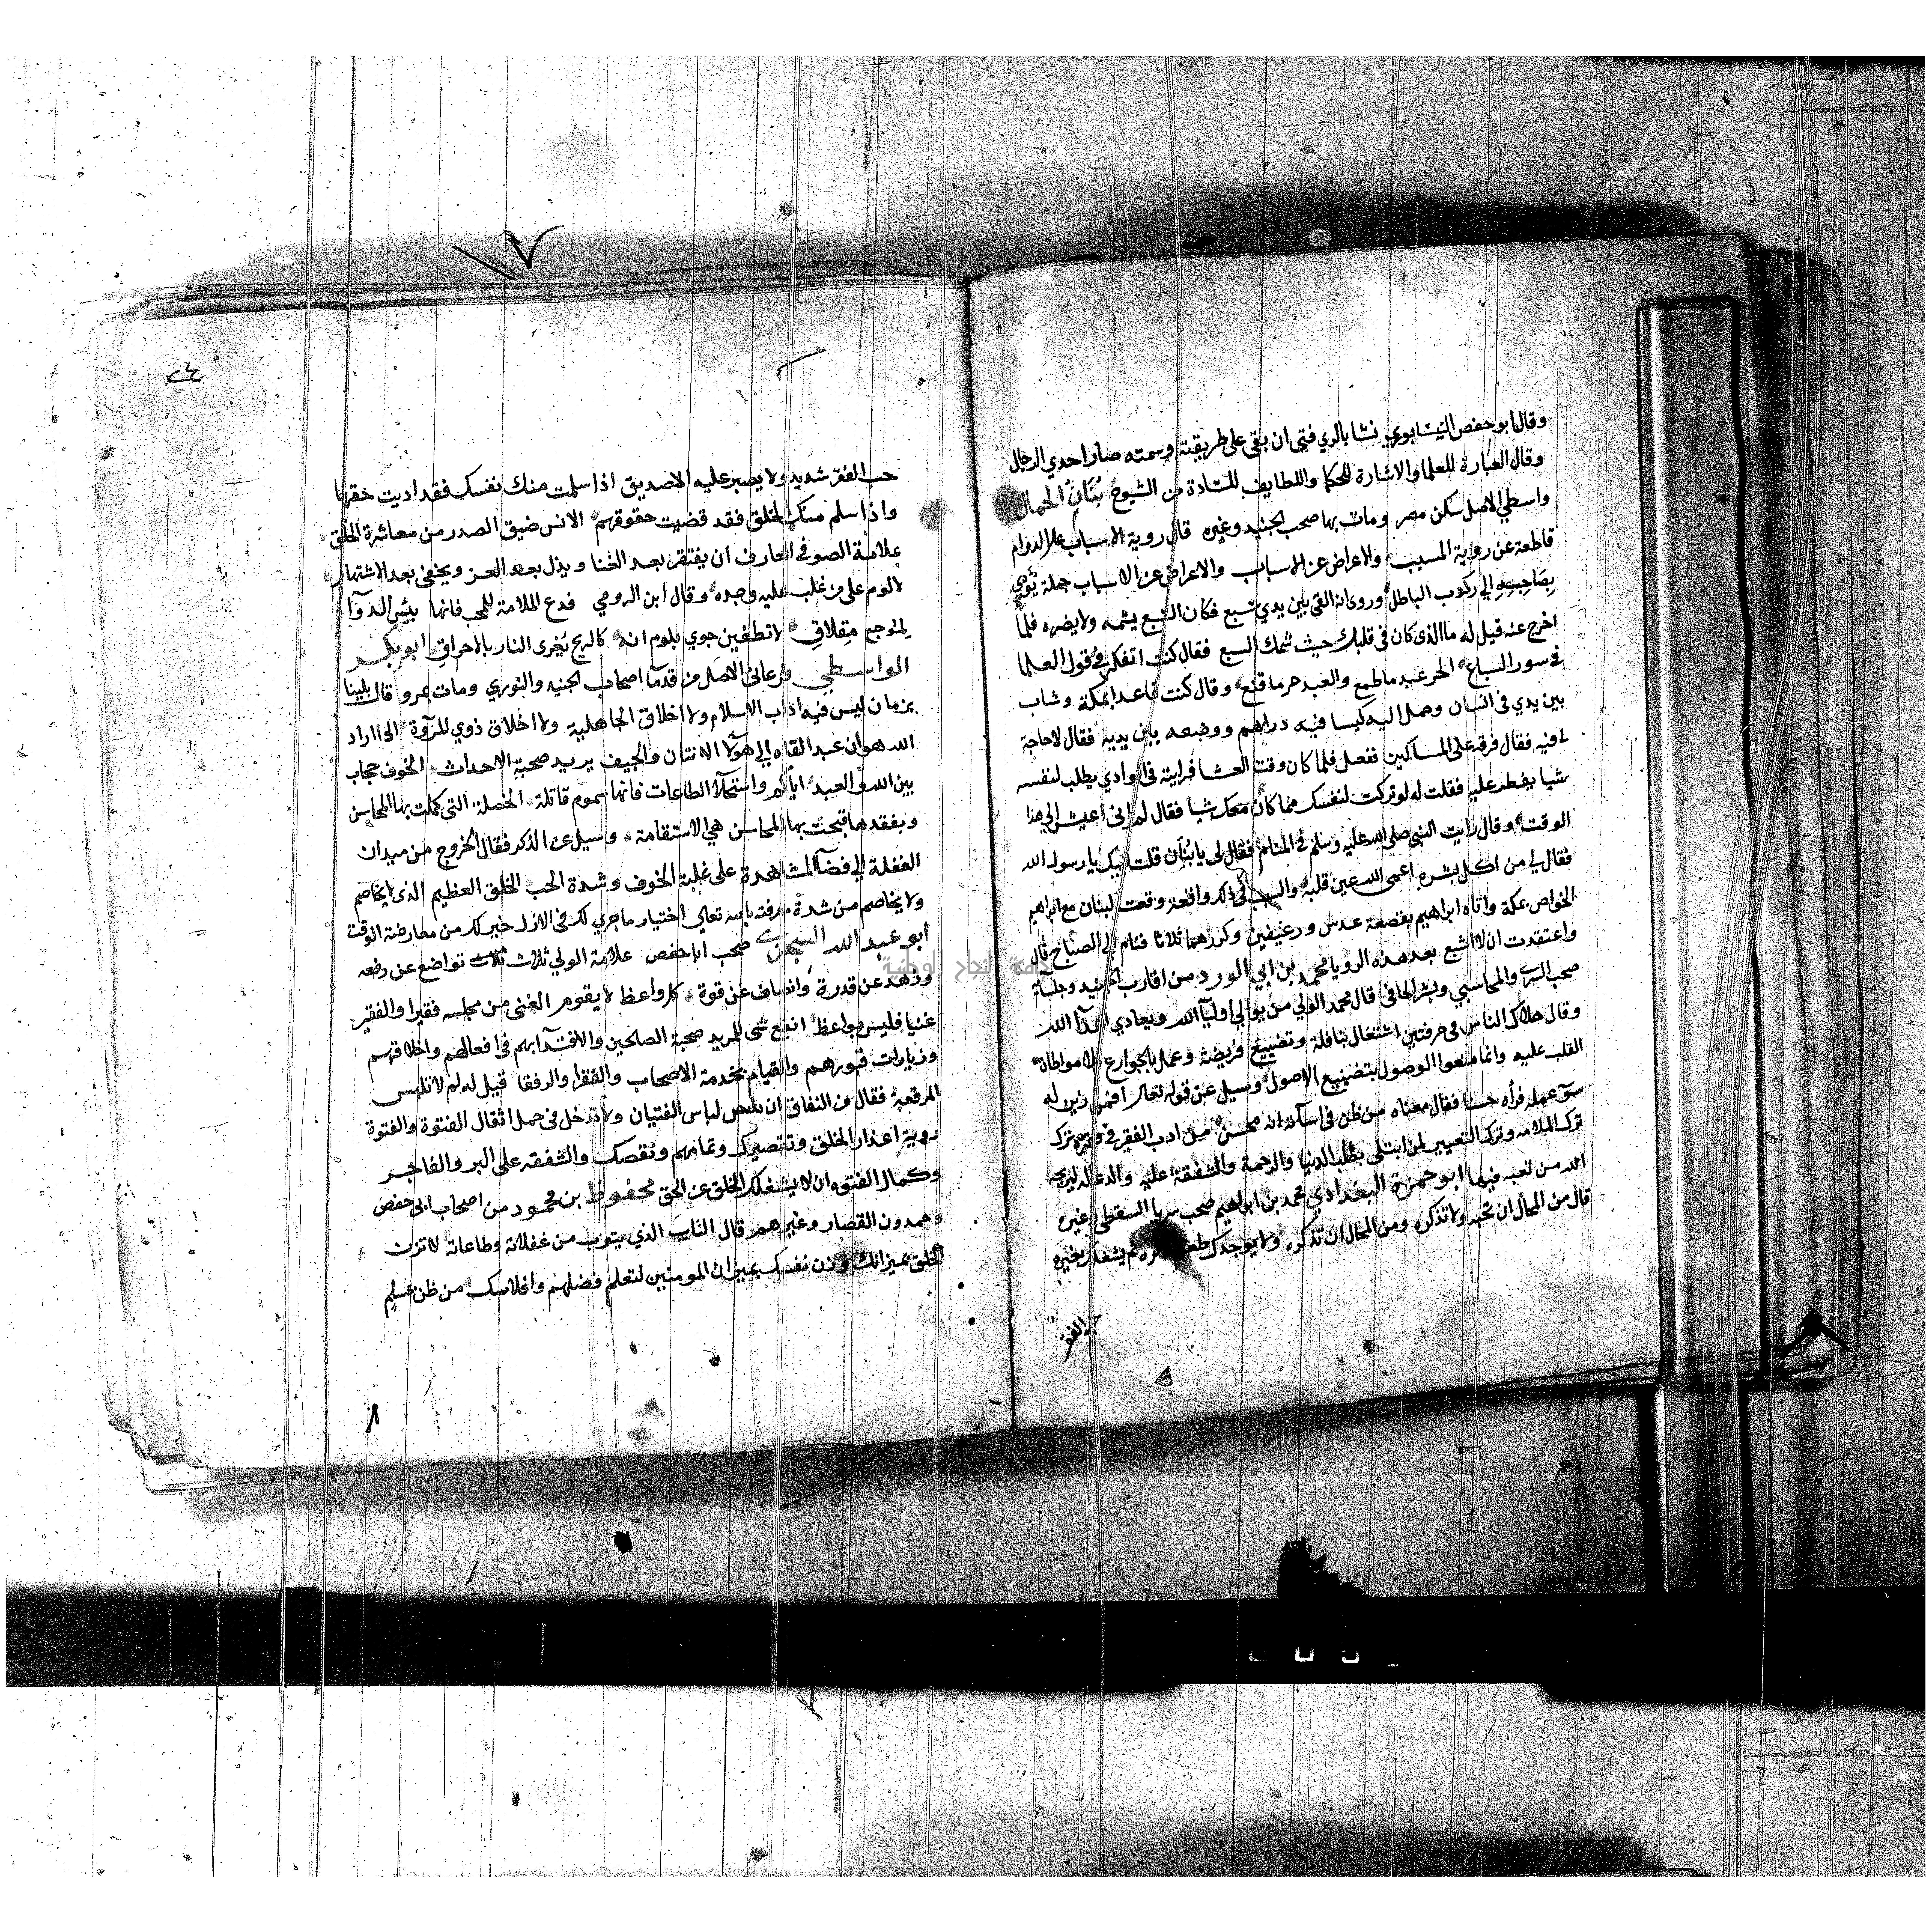 وقال ابو حفص النيسابوري نشا بالري فتى ان بقى على طريقته وسمته صار احدي الرجال
وقال العبارة للعلما والاشارة للحكما واللطايف للسادة من الشيوخ بُنَان الحمال
واسطي الاصل سكن مصر ومات بها صحب الجنيد وغيره قال روية الاسباب على الدوام
قاطعة عن روية المسبب والاعراض عن الاسباب والاعراض عن الاسباب جملة يؤدي
بصاحبه الي ركوب الباطل وروى انه القى بين يدي سبع فكان السبع يشمه ولا يضره فلما
اخرج عنه قيل له ما الذى كان فى قلبك حيث شمك السبع فقال كنت اتفكر في قول العلما
في سور السباع الحر عبد ما طمع والعبد حر ما قنع وقال كنت قاعدا بمكة وشاب
بين يدي فحمل اليه كيسا فيه دراهم ووضعه بين يديه فقال لا حاجة
لي فيه فقال فرقه على المساكين ففعل فلما كان وقت العشا فرايته فى الوادي يطلب لنفسه
شيا يفطر عليه فقلت له لو تركت لنفسك مما كان معك شيا فقال لم ادر انى اعيش الي هذا
الوقت وقال رايت النبي صلى الله عليه وسلم في المنام فقال لى يا بُنَان قلت لبيك يا رسول الله
فقال لي من اكل بشره اعمى الله عين قلبه في ذكر واقعة وقعت لبنان مع ابراهيم
الخواص بمكة واتاه ابراهيم بقصعة عدس ورغيفين وكررهما ثلاثا فنام الي الصباح قال
واعتقدت ان لا اشبع بعد هذه الرويا محمد بن ابي الورد من اقارب الجنيد وجلسائه
صحب السري والمحاسبي وبشر الحافى قال محمد الولي من يوالي اوليا الله ويعادي اعدا الله
وقال هلاك الناس فى حرفتين اشتغال بنافلة وتضييع فريضة وعمل بالجوارح بلا مواطاة
القلب عليه وانما منعوا الوصول بتضييع الاصول وسيل عن قوله تعالى افمن زين له
سوء عمله فرأه حسنا فقال معناه من ظن فى اسآته انه محسن من ادب الفقير فى فقره ترك
ترك الملامه وترك التعيير لمن ابتلى بطلب الدنيا والرحمة والشفقة عليه والدعا له ليريحه
الله من تعبه فيها ابو حمزة البغدادي محمد بن ابراهيم صحب سريا السقطى وغيره
قال من المحال ان تحبه ولا تذكره ومن المحال ان تذكره ولا يوجدك طعم ذكره ثم يشغلك بغيره
حب الفقر
حب الفقر شديد ولا يصبر عليه الا صديق اذا سلمت منك نفسك فقد اديت حقها
واذا سلم منك الخلق فقد قضيت حقوقهم الانس ضيق الصدر من معاشرة الخلق
علامة الصوفي العارف ان يفتقر بعد الغنا ويذل بعد العز ويخفى بعد الاشتهار
لا لوم على من غلب عليه وجده وقال ابن الرومي فدع الملامة للمحب فانها بيس الدوآ
لموجع مقلاق لا تطفين جوي بلوم انه كالريح تغرى النار بالاحراق ابو بكر
الواسطي فرغاني الاصل من قدمآ اصحاب الجنيد والنوري ومات بمرو قال بلينا
بزمان ليس فيه اداب الاسلام ولا اخلاق الجاهلية ولا اخلاق ذوي المروة اذا اراد
الله هوان عبد القاه الي هؤلا الانتان والجيف يريد صحبة الاحداث الخوف حجاب
بين الله والعبد اياكم واستحلآ الطاعات فانها سموم قاتلة الخصلة التى كملت بها المحاسن
وبفقدها قبحت بها المحاسن هي الاستقامة وسيل عن الذكر فقال الخروج من ميدان
الغفلة الي فضآ المشاهدة على غلبة الخوف وشدة الحب الخلق العظيم الذى لا يخاصم
ولا يخاصم من شدة معرفته بالله تعالي اختيار ما جري لك فى الازل خير لك من معارضة الوقت
ابو عبد الله السجزى صحب ابا حفص علامة الولي ثلاث ثلاث تواضع عن رفعه
وزهد عن قدرة وانصاف عن قوة كل واعظ لا يقوم الغنى من مجلسه فقيرا والفقير
غنيا فليس بواعظ انفع شى للمريد صحبة الصالحين والاقتدآ بهم فى افعالهم واخلاقهم
وزيارات قبورهم والقيام بخدمة الاصحاب والفقرا والرفقا قيل له لم لا تلبس
المرقعة فقال من النفاق ان تلبس لباس الفتيان ولا تدخل فى حمل اثقال الفتوة والفتوة
روية اعذار الخلق وتقصيرك وتمامهم ونقصك والشفقه على البر والفاجر
وكمال الفتوه ان لا يشغلك الخلق عن الحق محفوظ بن محمود من اصحاب ابى حفص
وحمدون القصار وغيرهم قال التايب الذي يتوب من غفلاته وطاعاته لا تزن
الخلق بميزانك وزن نفسك بميزان المومنين لتعلم فضلهم وافلاسك من ظن بمسلم